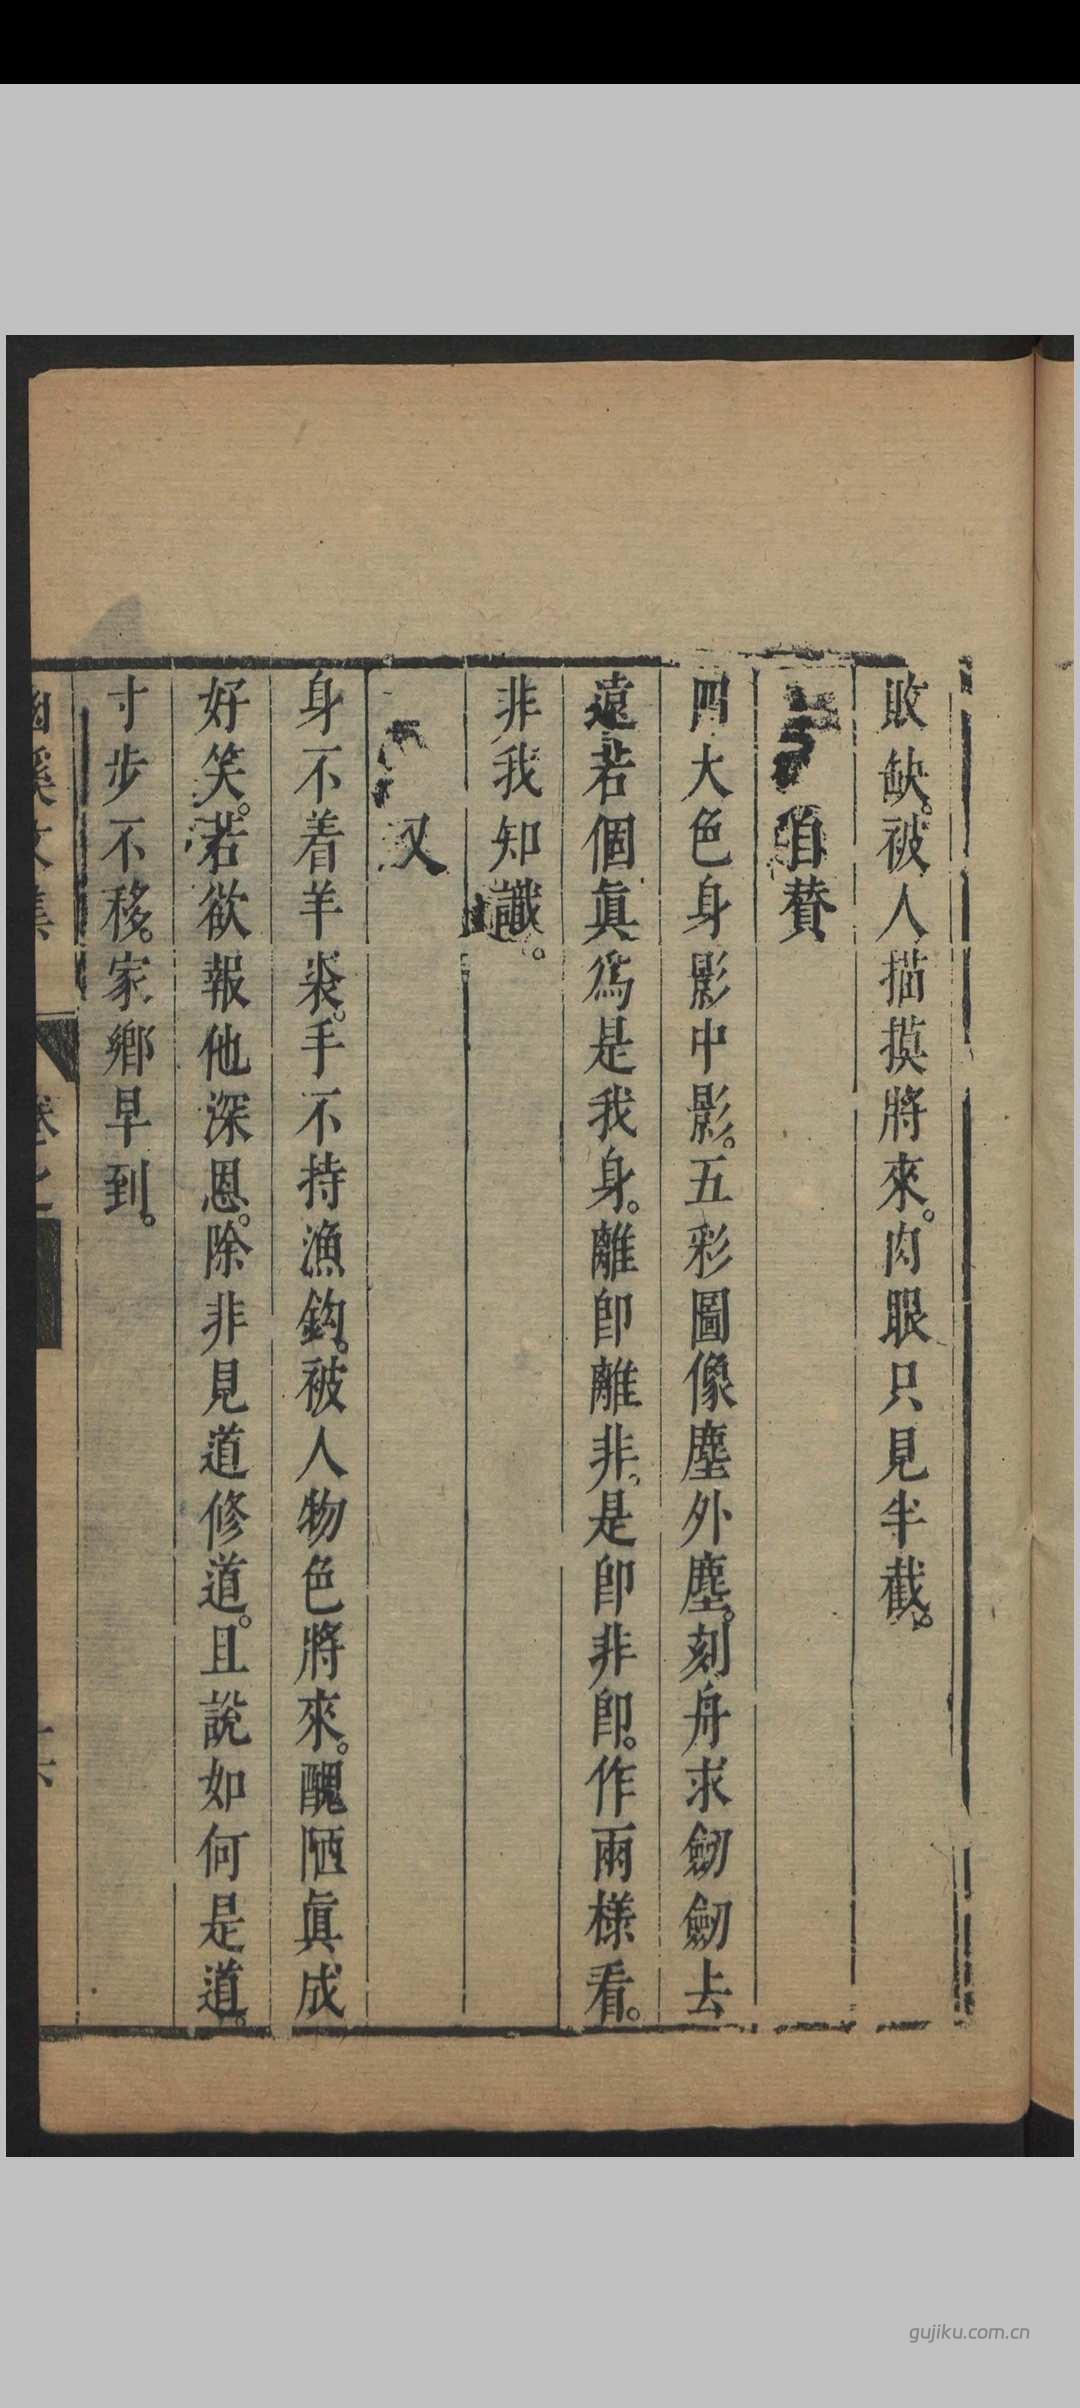 敗缺。被人描摸將來。肉眼只見半截。
自賛
四大色身影中影。五彩圖像塵外塵。刻舟求劒劒去
遠。若個眞爲是我身。離卽離非。是卽非卽。作兩様看。
非我知識。
又
身不着羊裘。手不持漁鈎。被人物色將來。醜陋眞成
好笑。若欲報他深恩。除非見道修道。且說如何是道。
寸步不移。家鄉早到。
幽溪文集
卷之
gujiku.com.cn